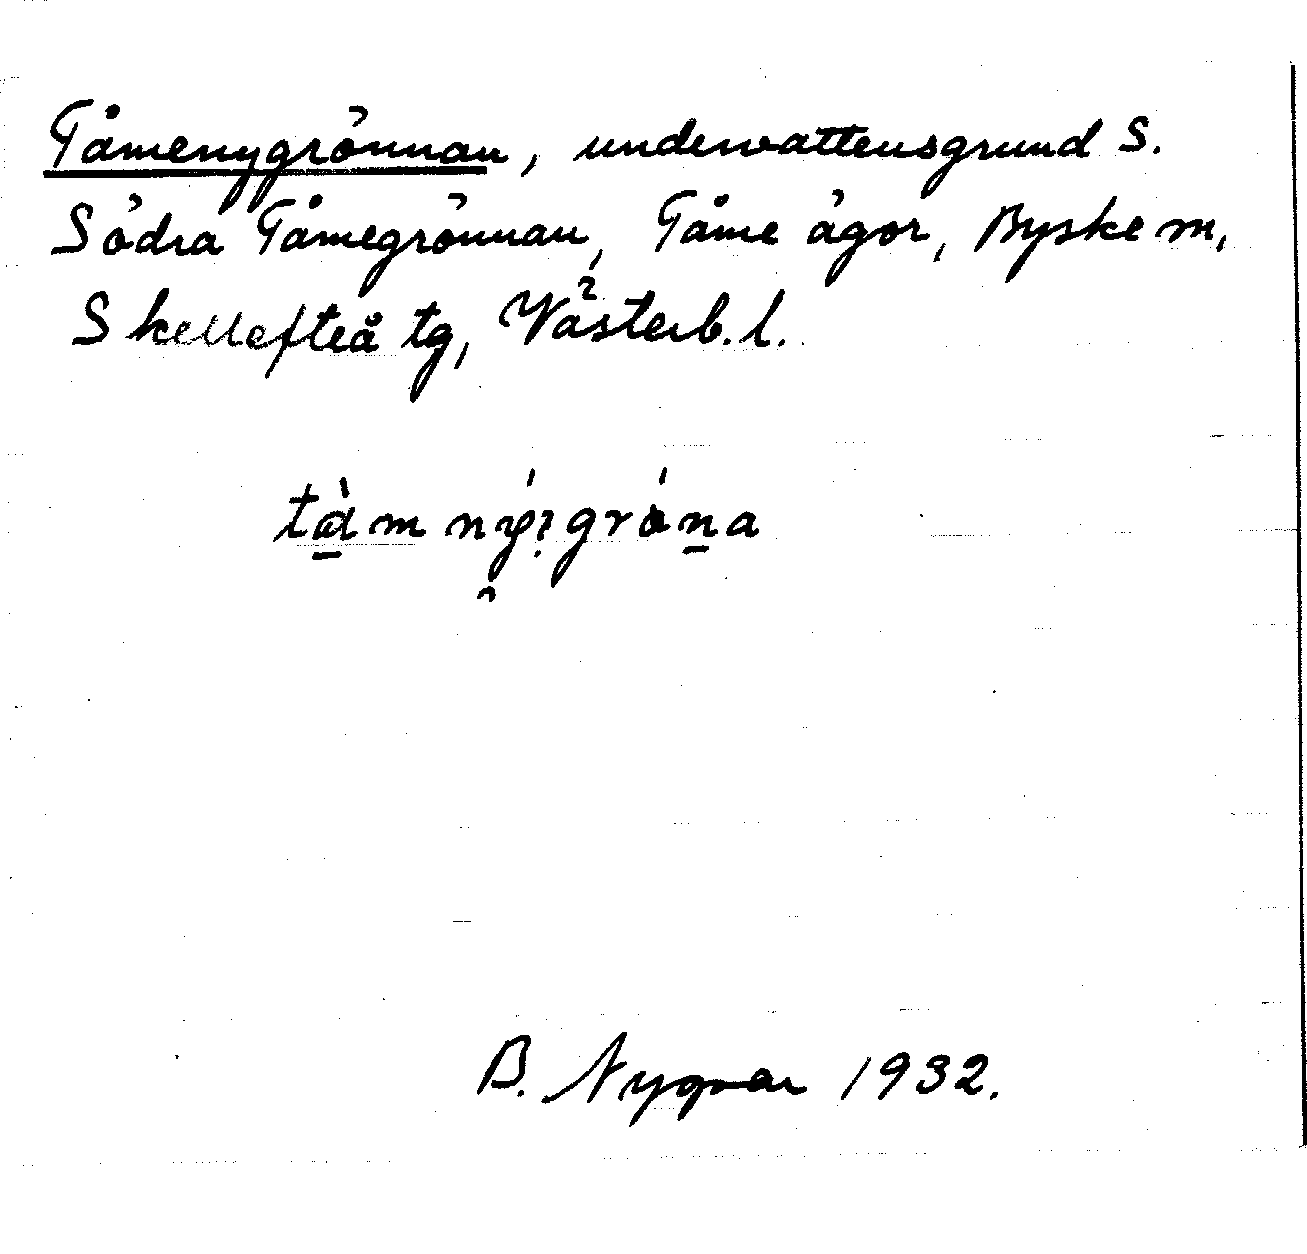 Tåmenygrönnan, undervattensgrund S.
Södra Tåmegrönnan, Tåme ägor, Byske sn,
Skellefteå tg, Västerb. l.
B. Nygvar 1932.